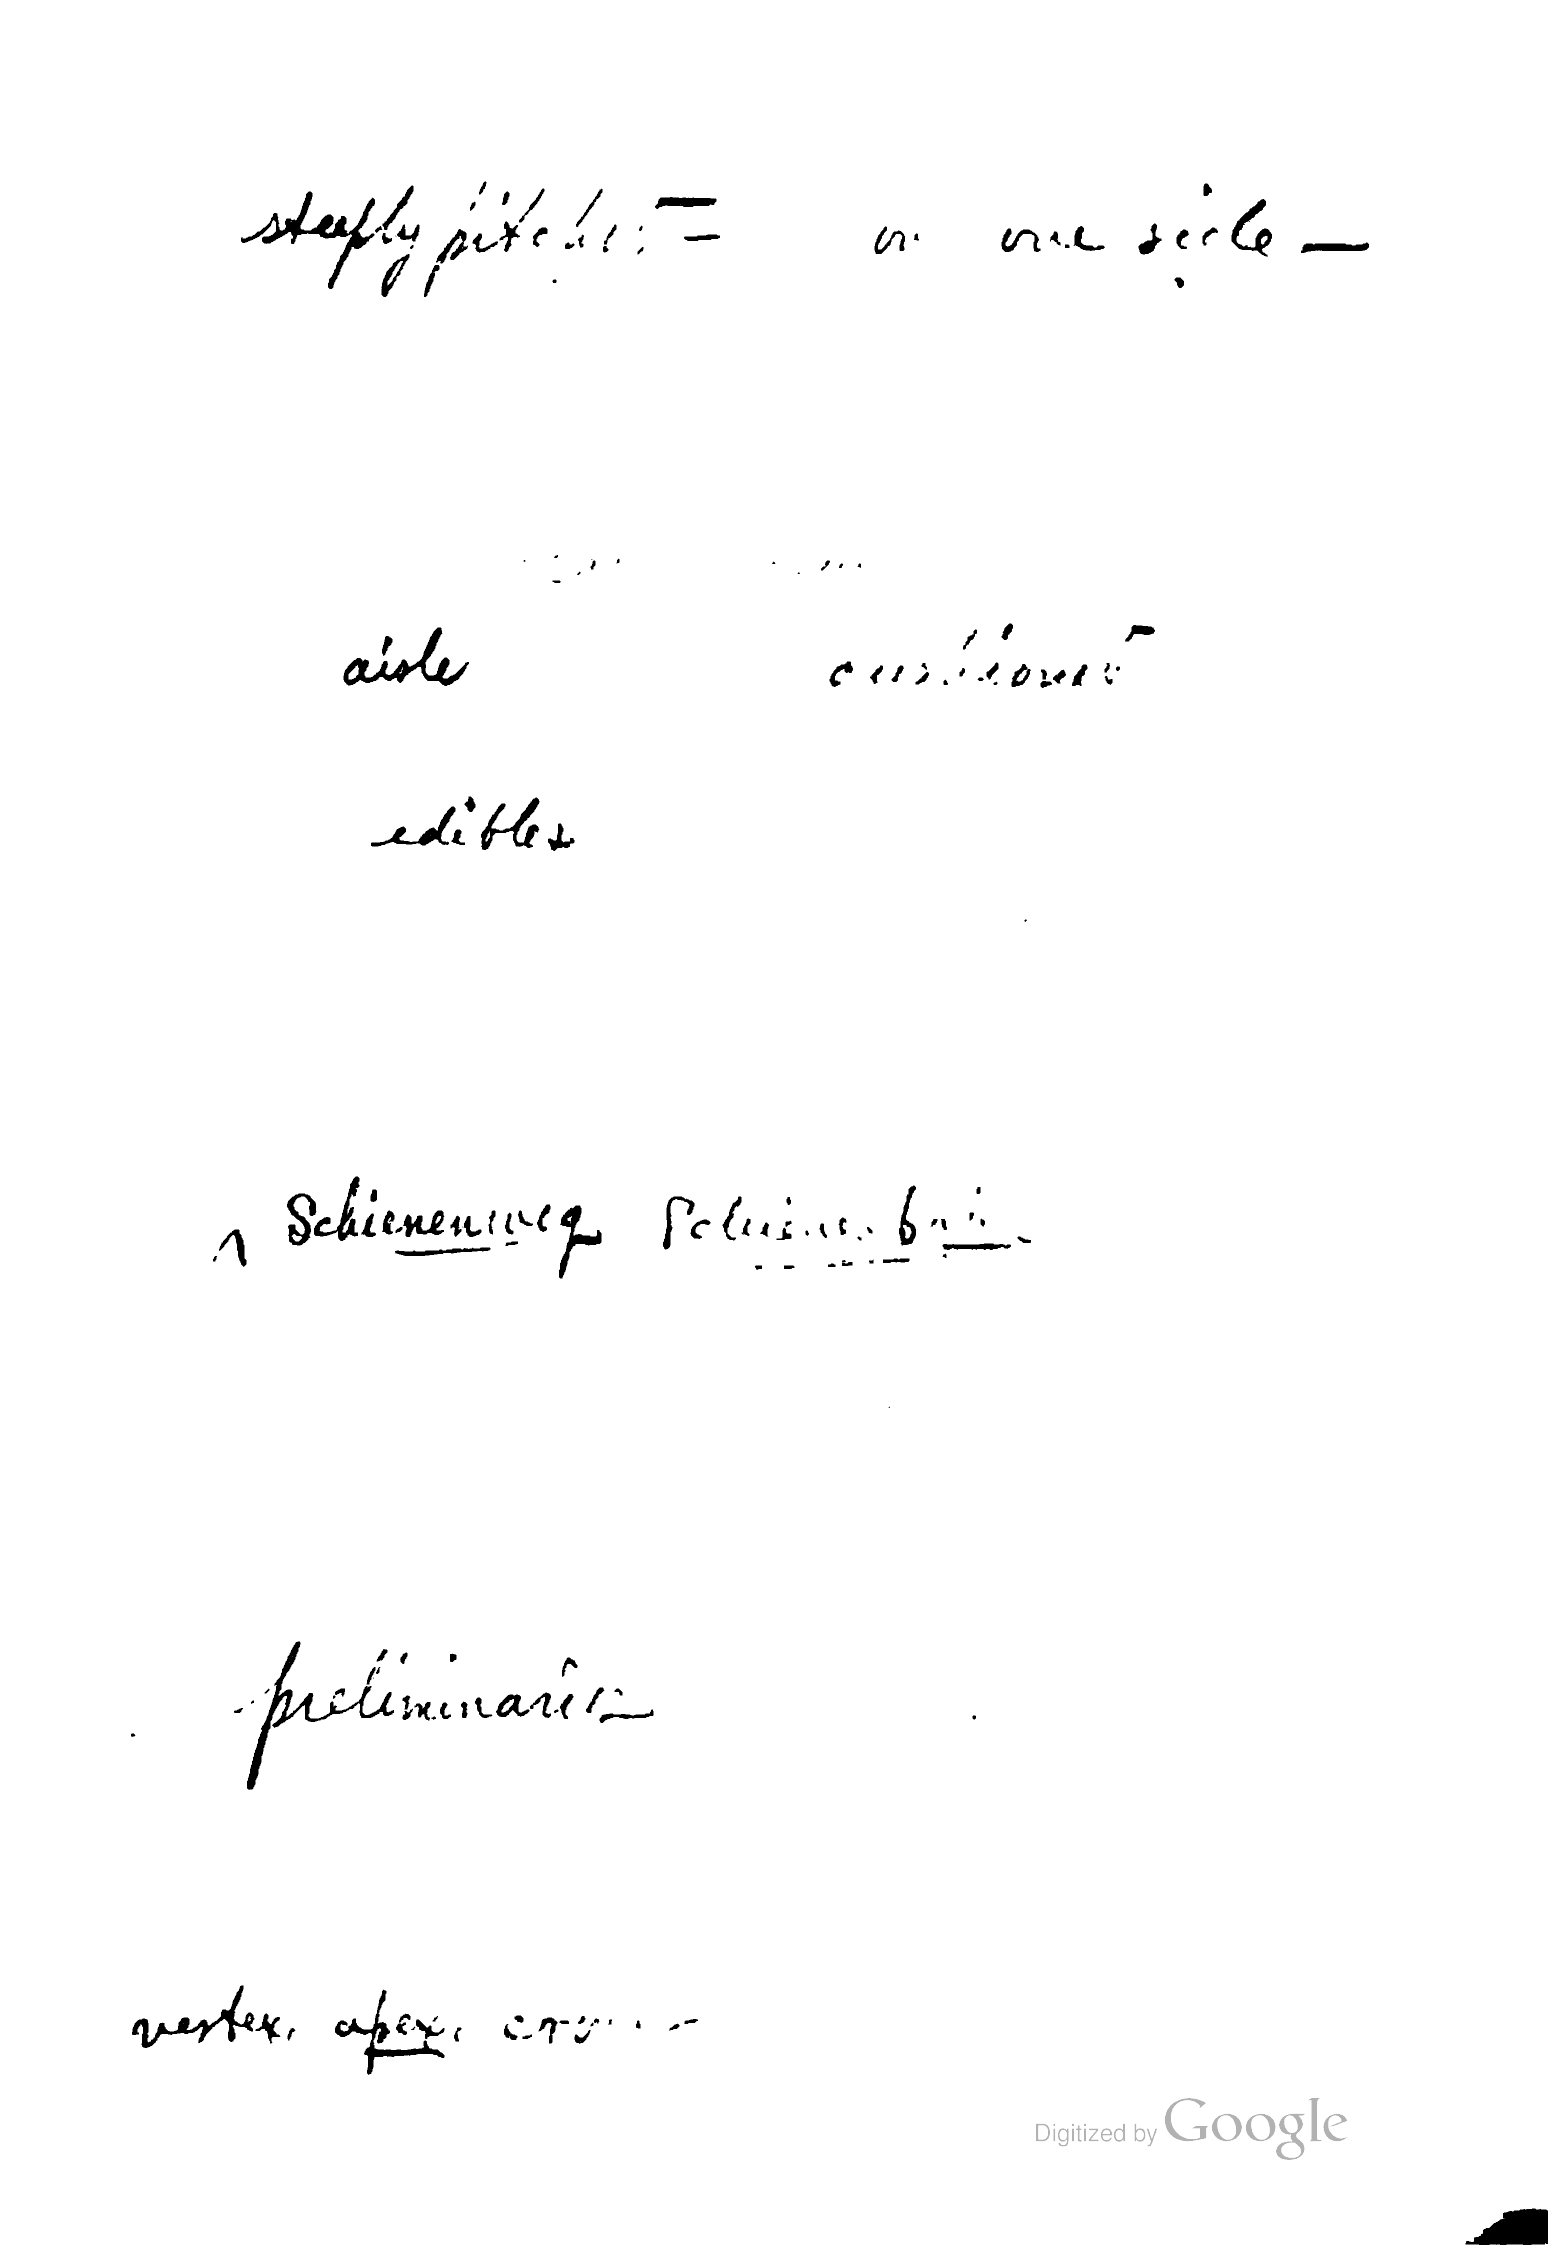 steeply pitched = on one side —
aisle cushioned
edibles
Schienenweg Schienenbahn
preliminaries
vertex, apex, crown
Digitized by Google